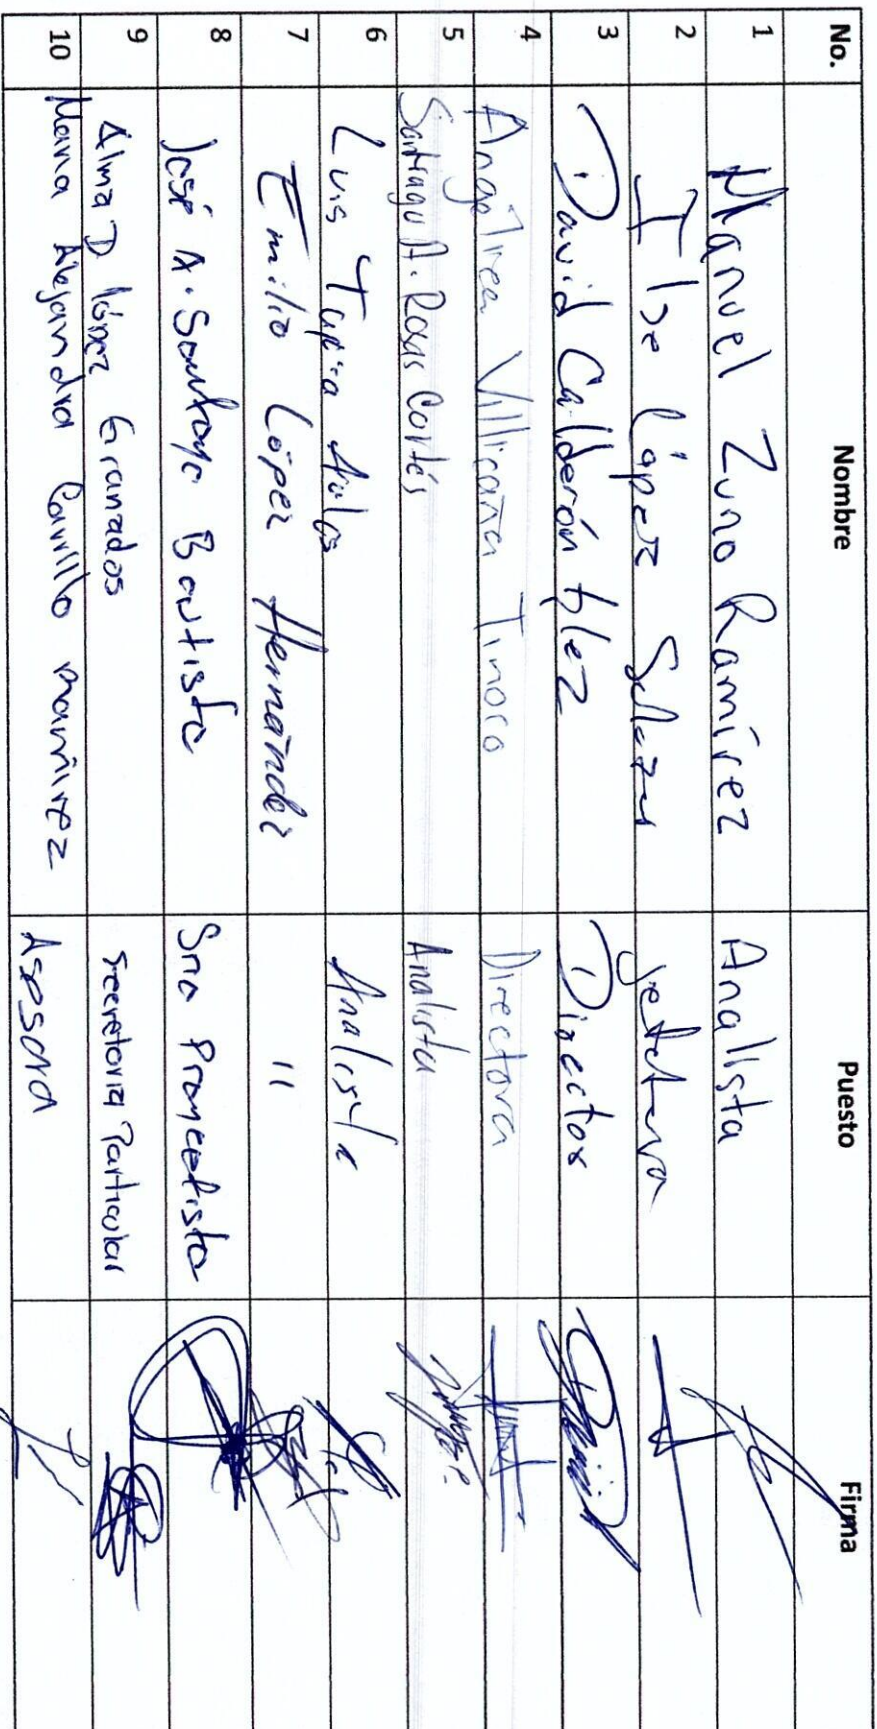 No. Nombre Puesto Firma
1 Manuel Zuno Ramírez Analista
2 Ilse López Salazar Jefatura
3 David Calderón Glez Director
4 Angélica Villicaña Tinoco Directora
5 Santiago A. Rosas Cortés Analista
6 Luis Tapia Analista
7 Emilio López Hernández "
8 José A. Santoyo Bautista
9 Alma D López Granados Secretaria Particular
10 Maria Alejandra Carrillo Ramírez Asesora